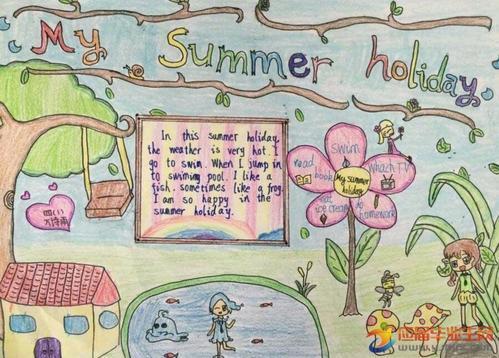 My Summer holiday
In this summer holiday,
the weather is very hot. I
go to swim. When I jump in
to swiming pool. I like a
fish. sometimes like a frog.
I am so happy in the
summer holiday.
swim
read
book
whach TV
My summer
holiday
eat
ice cream
do
homework
应届毕业生网